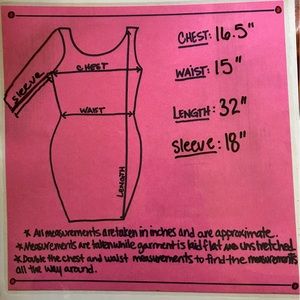 CHEST: 16.5"
WAIST: 15"
LENGTH: 32"
Sleeve: 18"
Sleeve
CHEST
WAIST
LENGTH
* All measurements are taken in inches and are approximate.
* Measurements are taken while garment is laid flat and unstretched.
* Double the chest and waist measurements to find the measurements
all the way around.